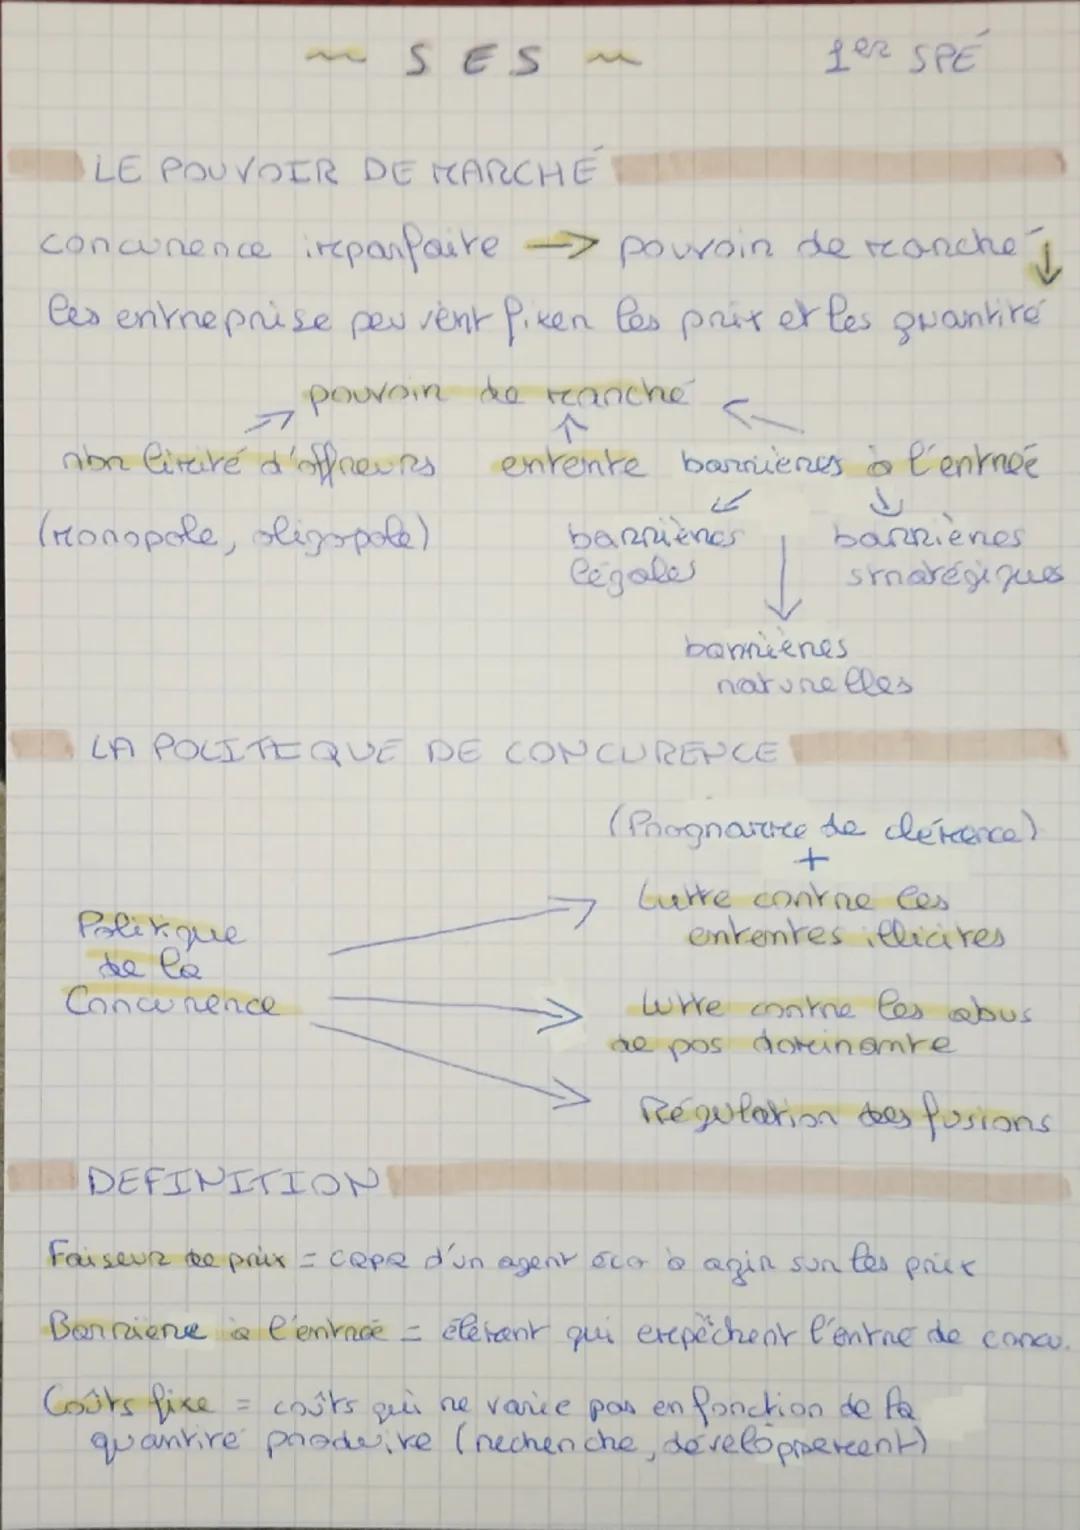 ~ SES ~ 1er SPÉ
LE POUVOIR DE MARCHÉ
concurence imparfaite → pouvoir de marché ↓
les entreprise peuvent fixer les prix et les quantité
pouvoir de marché
nbr limité d'offreurs entente barrières à l'entrée
(monopole, oligopole) barrières légales barrières stratégiques
barrières
naturelles
LA POLITIQUE DE CONCURENCE
(Programme de clémence)
+
Lutte contre les
ententes illicites
Politique
de la
Concurence
Lutte contre les abus
de pos dominante
Régulation des fusions
DEFINITION
Faiseur de prix = capa d'un agent éco à agir sur les prix
Barrière à l'entrée = élémant qui empêchent l'entré de concu.
Coûts fixe = coûts qui ne varie pas en fonction de la
quantité produite (recherche, développement)